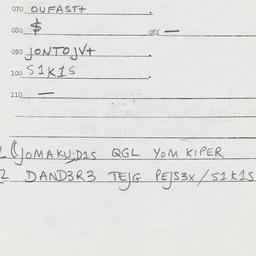 070 OUFAST+
080 $ 081 —
090 JONTOJV+
100 S1K1S
110 —
1 (JOMAKU;D1S QGL YOM KIPER
2 DAND3R3 TEJG PEJS3X/S1K1S